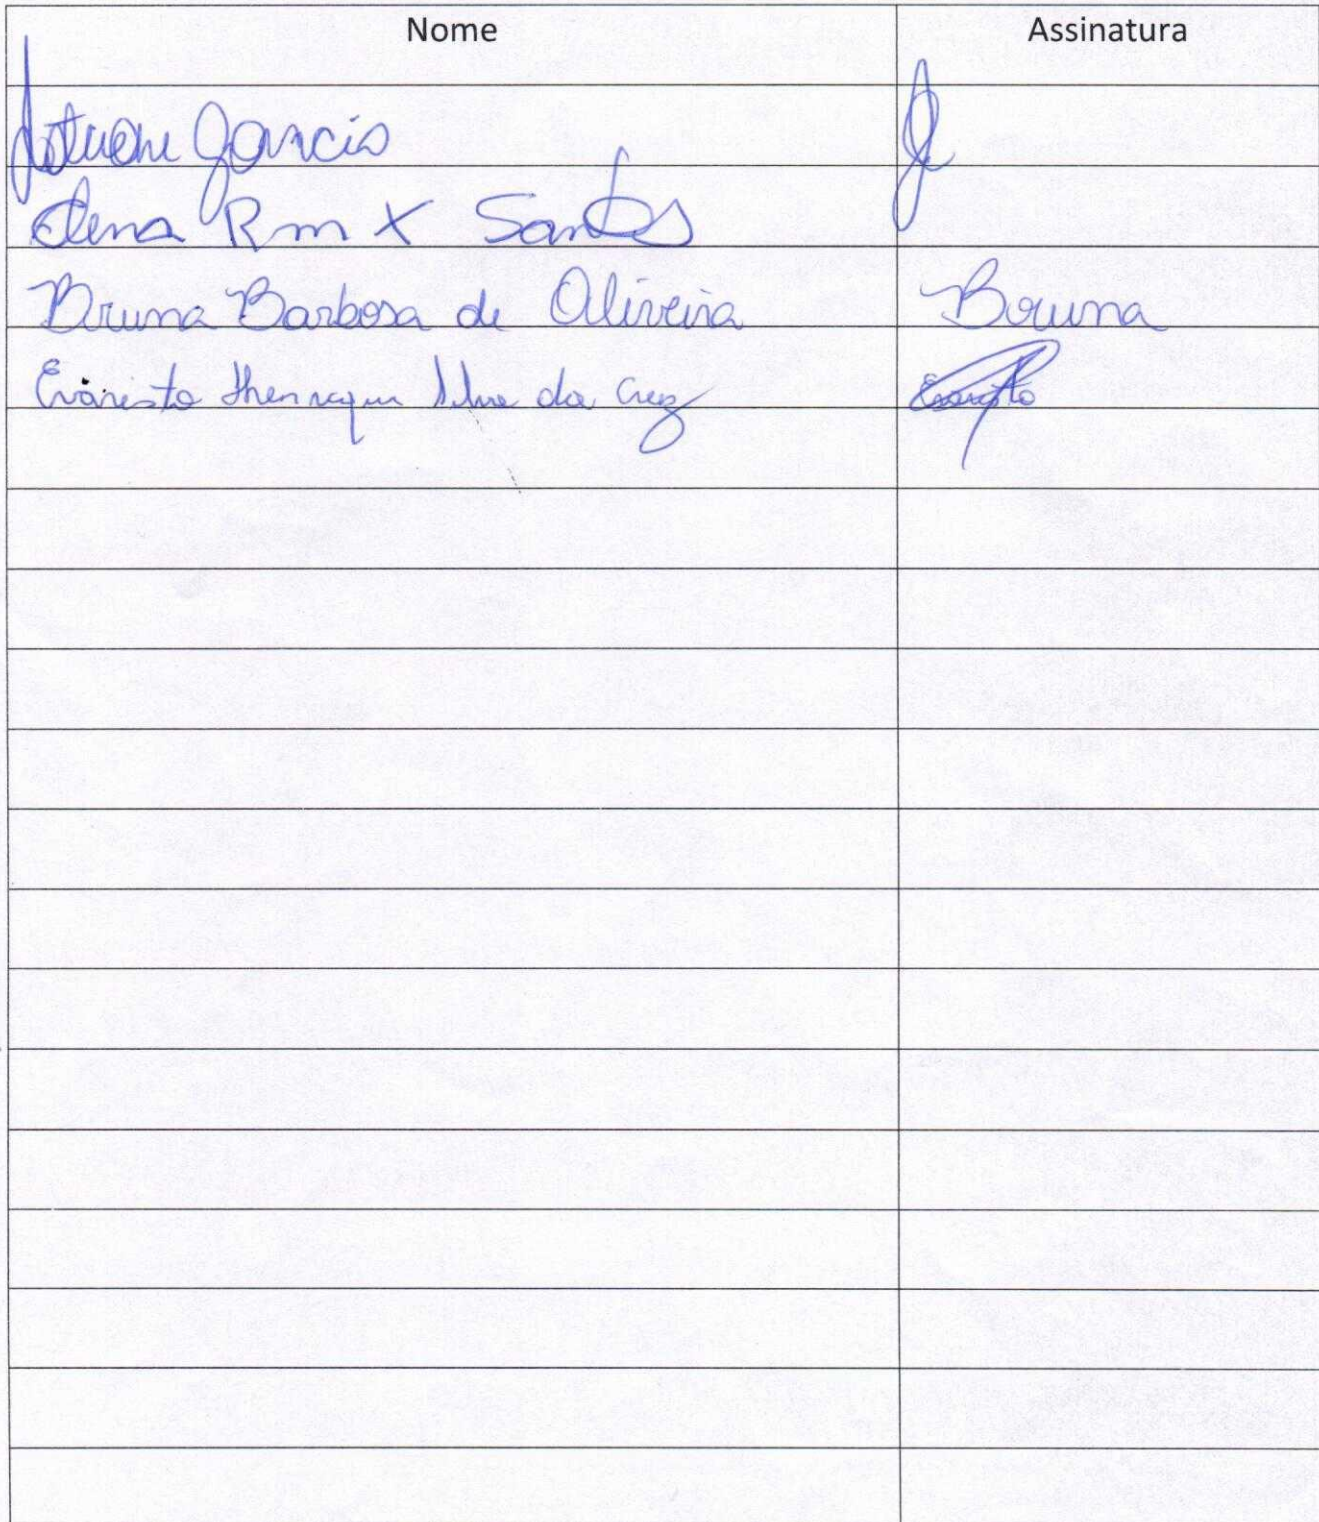 Nome Assinatura
Garcia
Rm X Santos
Bruna Barbosa de Oliveira Bruna
Evaristo Henrique Silva da Cruz Evaristo